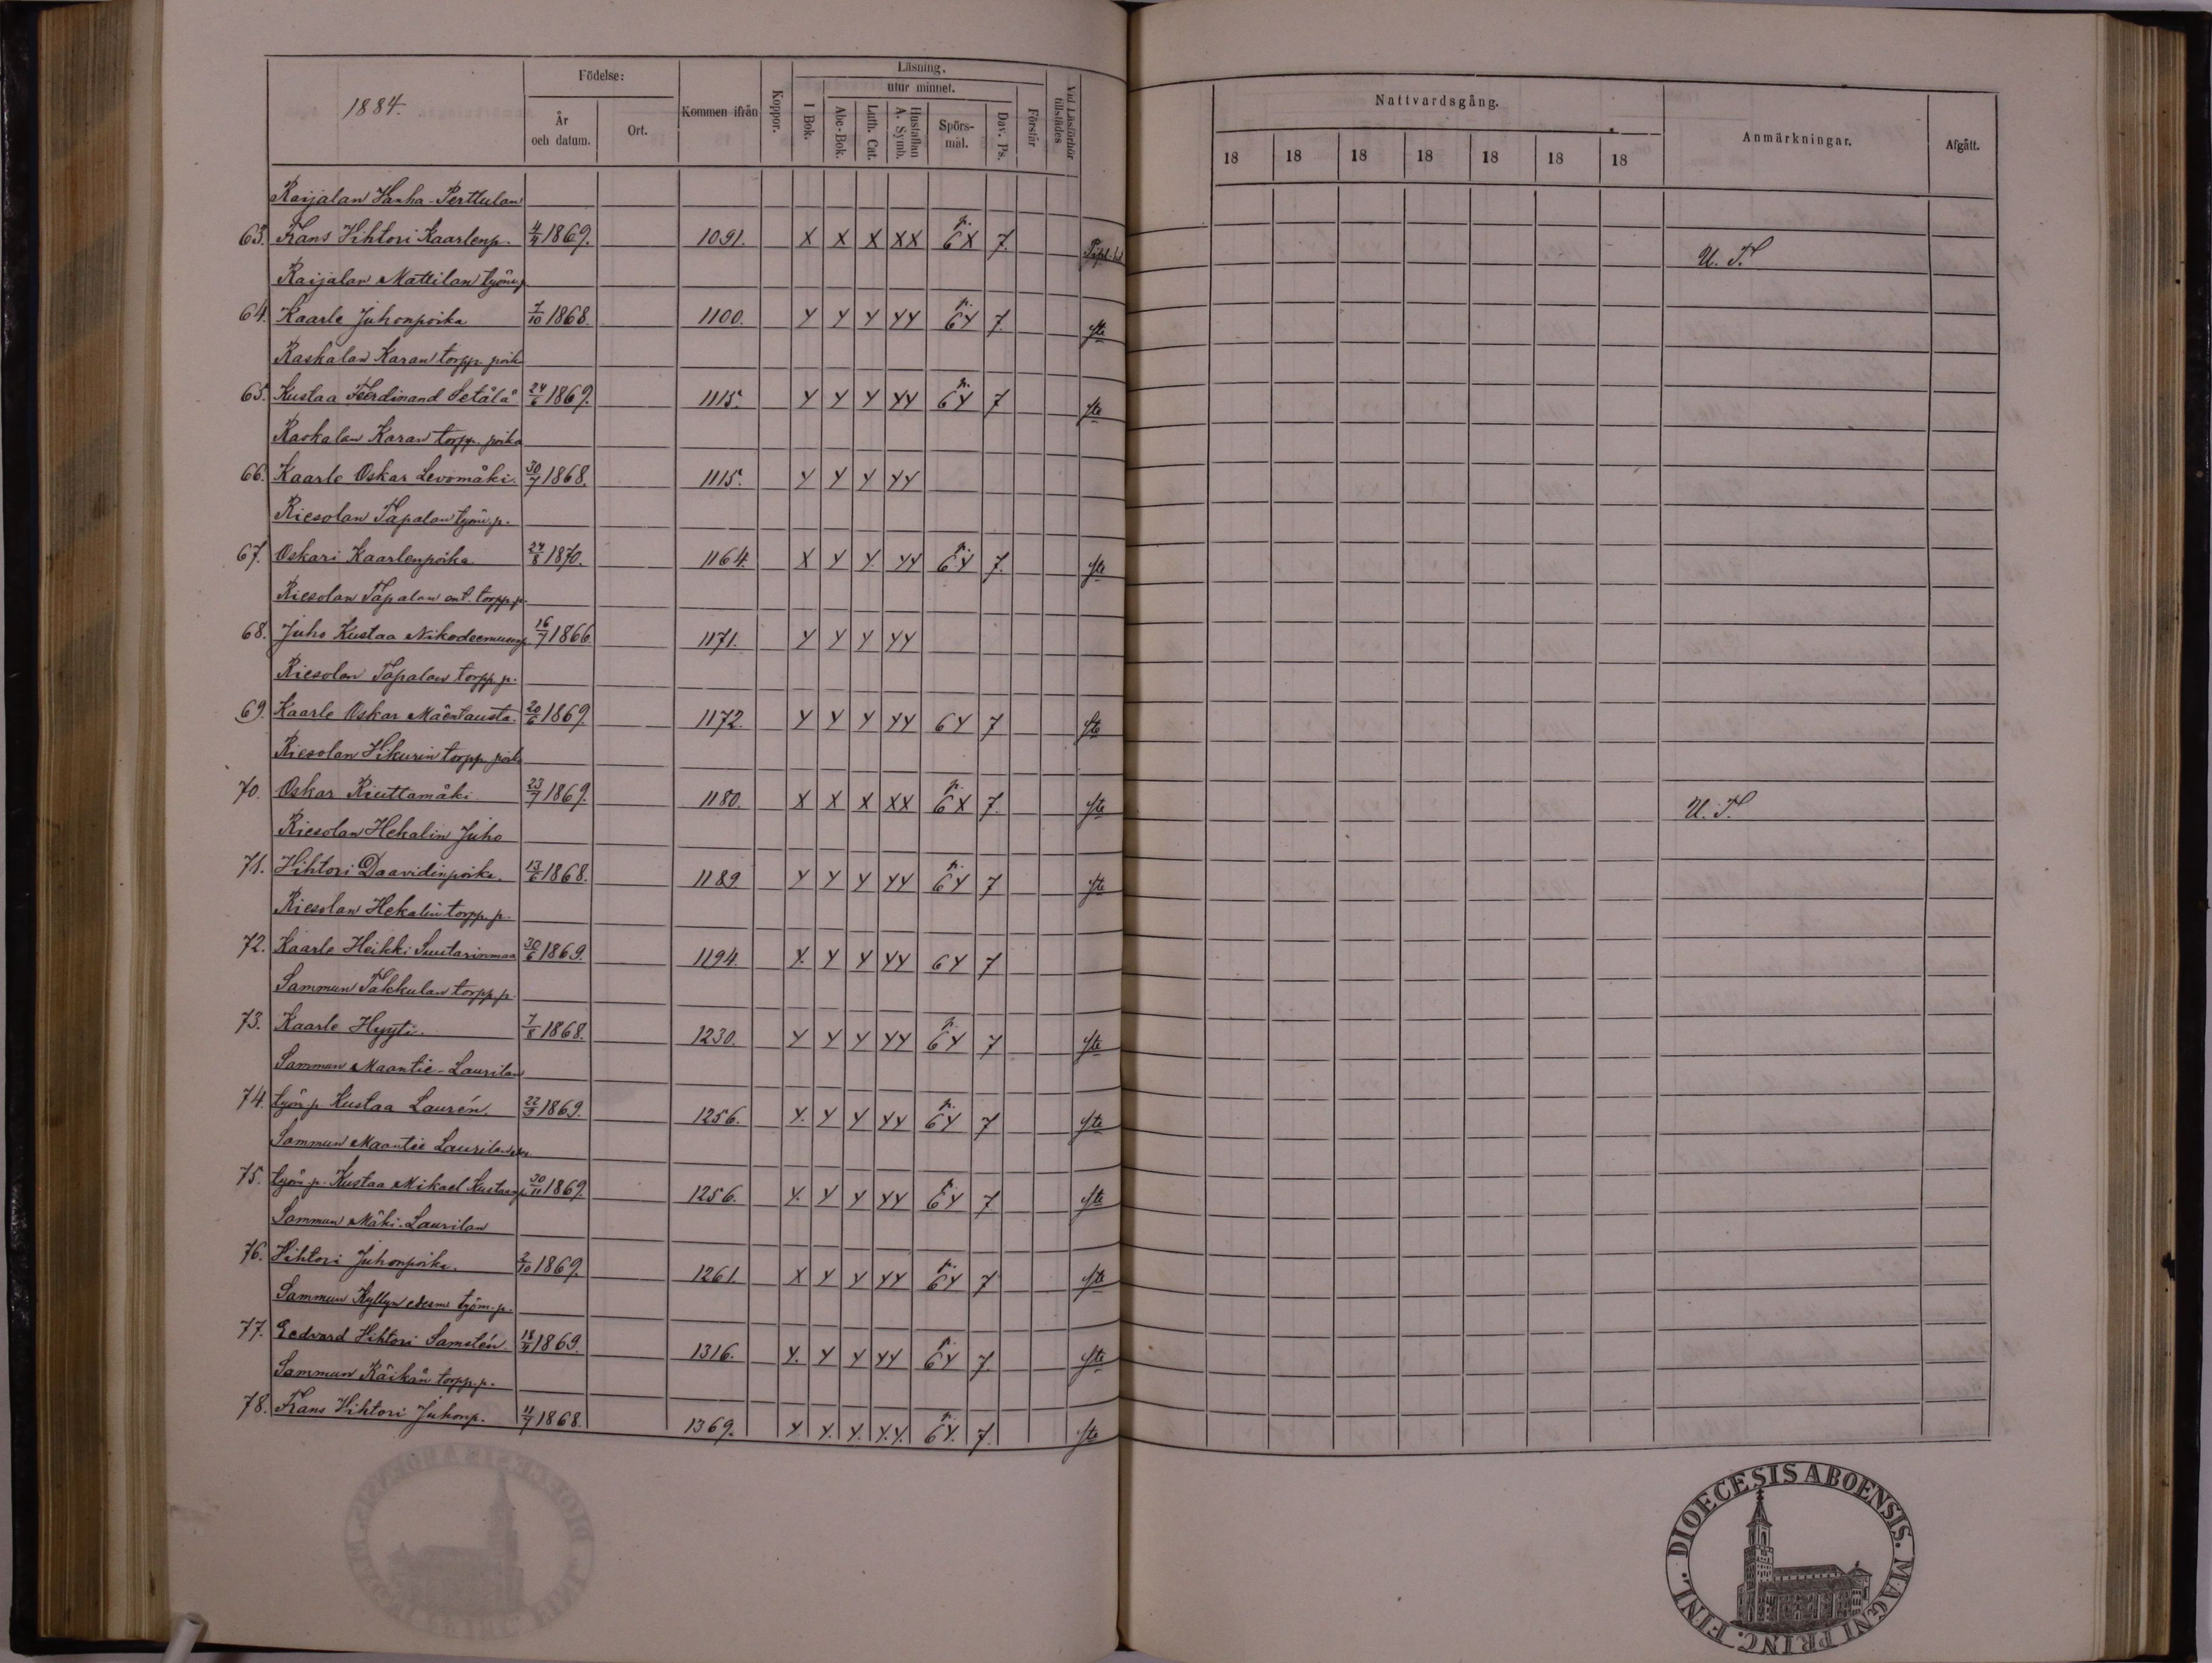 1884.
Födelse:
År och datum.
Ort.
Kommen ifrån
Koppor.
Läsning.
utur minnet.
I Bok.
Abc-Bok.
Luth. Cat.
Hustaflan A. Symb.
Spörs-mål.
Dav. Ps.
Förstår
Vid Läsförhör tillstädes
Nattvardsgång.
18 18 18 18 18 18 18
Anmärkningar.
Afgått.
Raijalan Vanha-Perttulan
63. Frans Vihtori Kaarlenp. 4/4 1869. 1091. X X X XX p. 6X 7. U. T.
Raijalan Mattilan työmp
64. Kaarle Juhonpoika 7/10 1868. 1100. Y Y Y YY p. 6Y 7. ste
Raskalan Karan torpp. poik
65. Kustaa Feerdinand Setälä 24/6 1869. 1115. Y Y Y YY p. 6Y 7 ste
Raskalan Karan torpp. poika
66. Kaarle Oskar Levomäki. 30/7 1868. 1115. Y Y Y YY
Riesolan Tapalan työm. p.
67. Oskari Kaarlenpoika 24/8 1870. 1164. X Y Y YY p. 6Y 7. ste
Riesolan Tapalan ent. torpp. p.
68. Juho Kustaa Nikodeemusenp 16/7 1866 1171. Y Y Y YY
Riesolan Tapalan torpp. p.
69. Kaarle Oskar Mäentausta. 20/6 1869 1172. Y Y Y YY 6Y 7 ste
Riesolan Vikurin torpp. poika
70. Oskar Riuttamäki 23/7 1869. 1180. X X X XX p. 6X 7. ste U. T.
Riesolan Hekalin Juho
71. Vihtori Daavidinpoika. 13/6 1868. 1189 Y Y Y YY p. 6Y 7 ste
Riesolan Hekalin torpp. p.
72. Kaarle Heikki Suutarinmaa 30/6 1869. 1194. Y. Y Y YY 6Y 7
Sammun Takkulan torpp. p.
73. Kaarle Hyyti. 7/8 1868. 1230. Y Y Y YY p. 6Y 7 ste
Sammun Maantie-Laurilan
74. työm p. Kustaa Laurén. 22/9 1869. 1256. Y. Y Y YY p. 6Y 7 ste
Sammun Maantie Laurilan
75. työm p. Kustaa Mikael Kustaanp. 30/11 1869. 1256. Y. Y Y YY p. 6Y 7 ste
Sammun Mäki-Laurilan
76. Vihtori Juhonpoika. 2/10 1869. 1261. X Y Y YY p. 6Y 7 ste
Sammun Kyllyn työm. p.
77. Eedvard Vihtori Samstén. 18/4 1869. 1316. Y. Y Y YY p. 6Y 7. ste
Sammun Räikän torpp. p.
78. Frans Vihtori Juhonp. 11/7 1868. 1369. Y Y. Y. Y.Y. p. 6Y. 7. ste
DIOECESIS ABOENSIS. MAGNI PRINC. FINL.